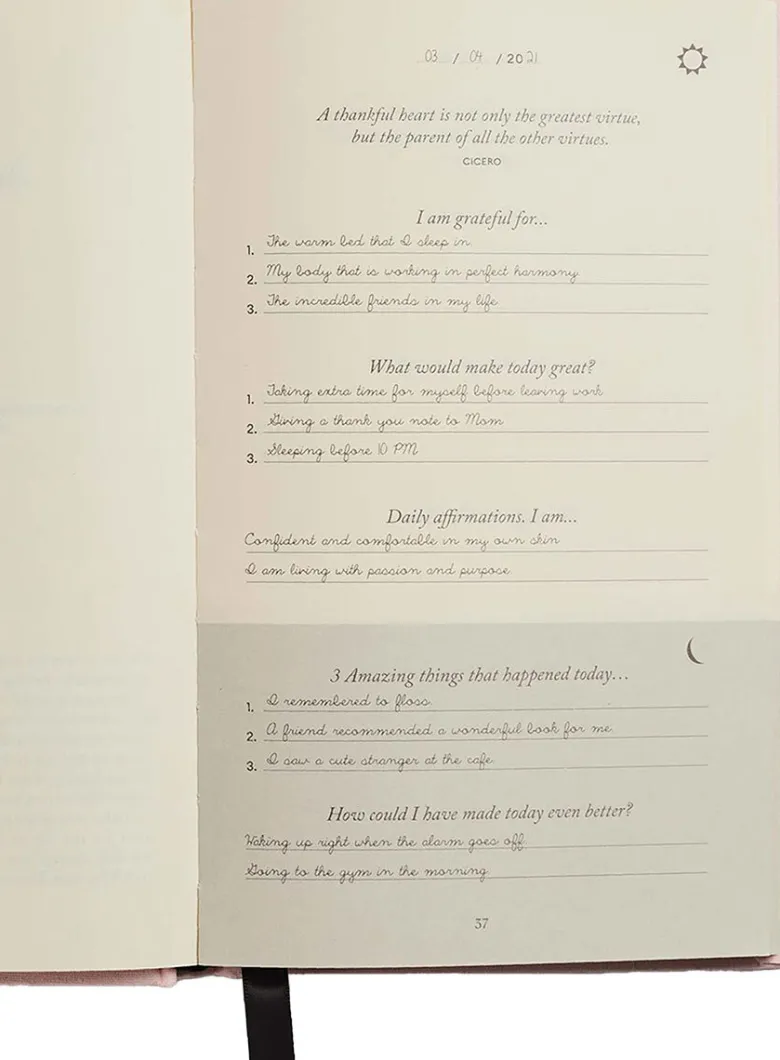 03 / 04 / 2021
A thankful heart is not only the greatest virtue,
but the parent of all the other virtues.
CICERO
I am grateful for...
1. The warm bed that I sleep in.
2. My body that is working in perfect harmony.
3. The incredible friends in my life.
What would make today great?
1. Taking extra time for myself before leaving work
2. Giving a thank you note to Mom
3. Sleeping before 10 PM
Daily affirmations. I am...
Confident and comfortable in my own skin
I am living with passion and purpose.
3 Amazing things that happened today...
1. I remembered to floss.
2. A friend recommended a wonderful book for me.
3. I saw a cute stranger at the cafe.
How could I have made today even better?
Waking up right when the alarm goes off.
Going to the gym in the morning.
37